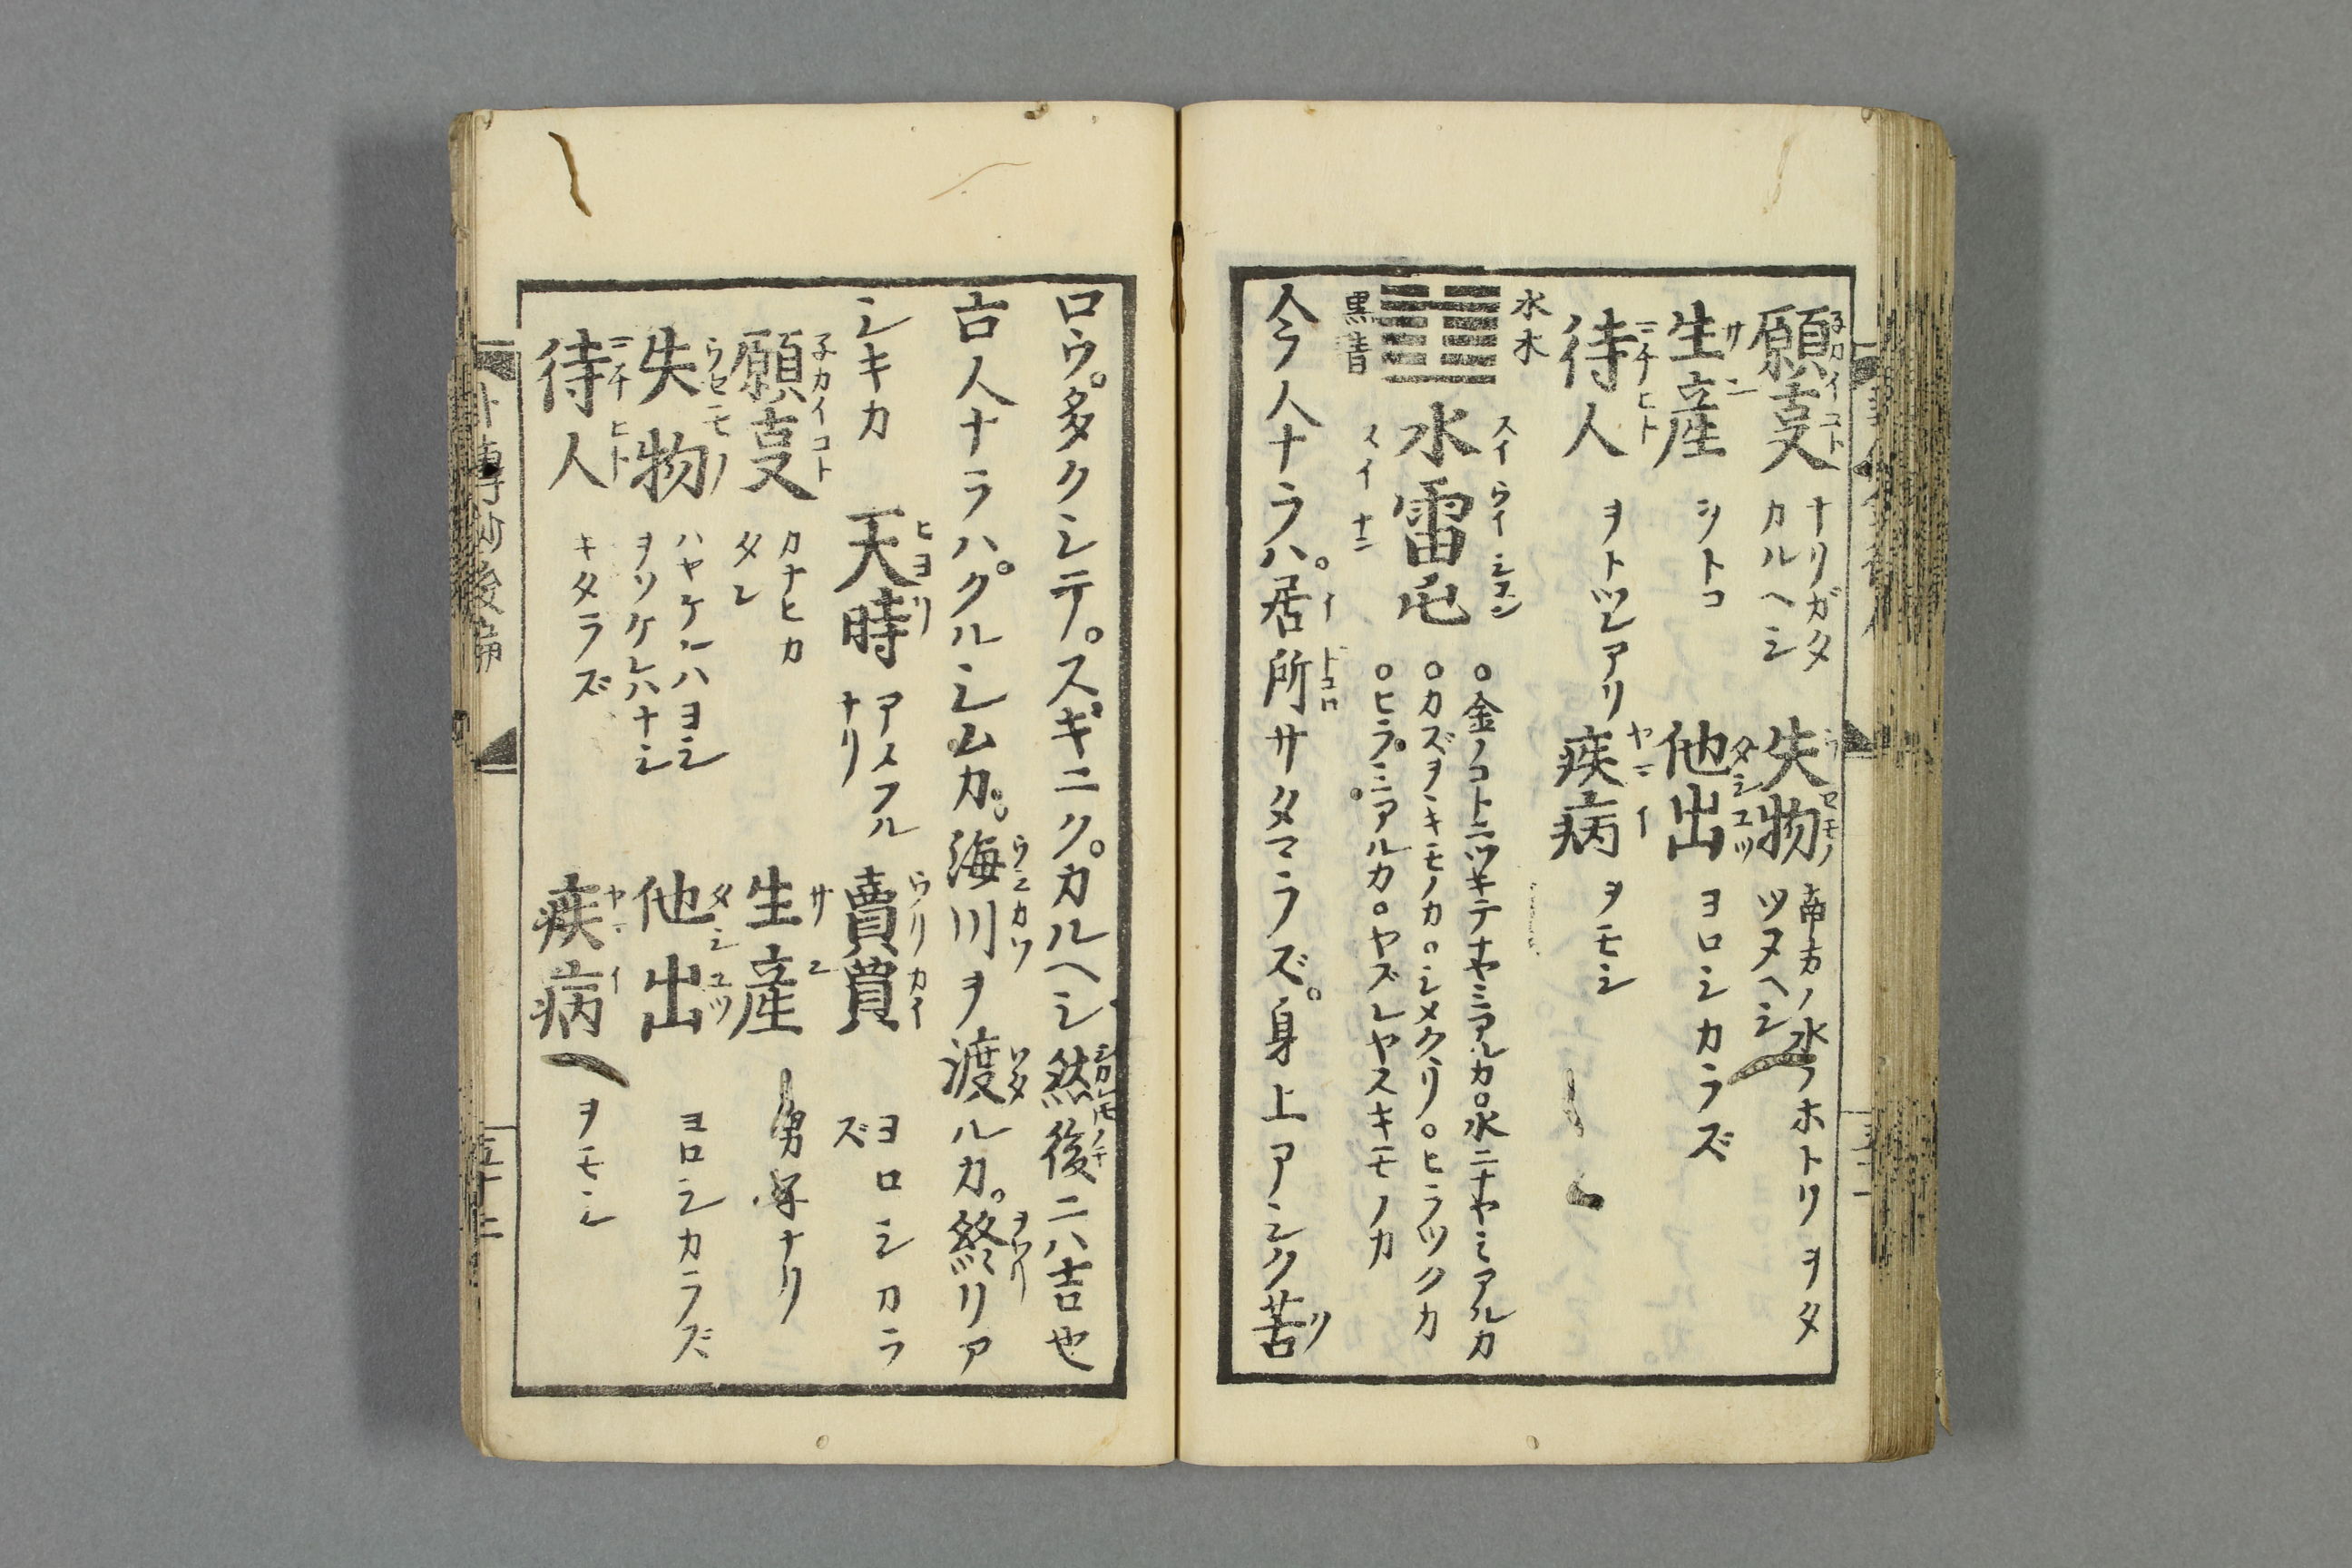 願叓 ナリガタ
カルヘシ
失物 南方ノ水ノホトリヲタ
ツヌヘシ
生産 ヲトコ
他出 ヨロシカラズ
待人 ヲトヅレアリ
疾病 ヲモシ
水木
水雷屯
黒青
○金ノコトニツキテナヤミアルカ○水ニナヤミアルカ
○カズヲヽキモノカ○シメクヽリ○ヒラツクカ
○ヒラミアルカ○ヤズレヤスキモノカ
今人ナラハ。居所サタマラズ。身上アシク苦
ロウ。多クシテ。スギニク。カルヘシ然後ニハ吉也
古人ナラハ。クルシムカ。海川ヲ渡ルカ。終リア
シキカ
天時 アメフル
ナリ
賣買 ヨロシカラ
ズ
願叓 カナヒカ
タシ
生産 男子ナリ
失物 ハヤケレハヨシ
ヲソケレハナシ
他出 ヨロシカラズ
待人 キタラズ
疾病 ヲモシ
五十二